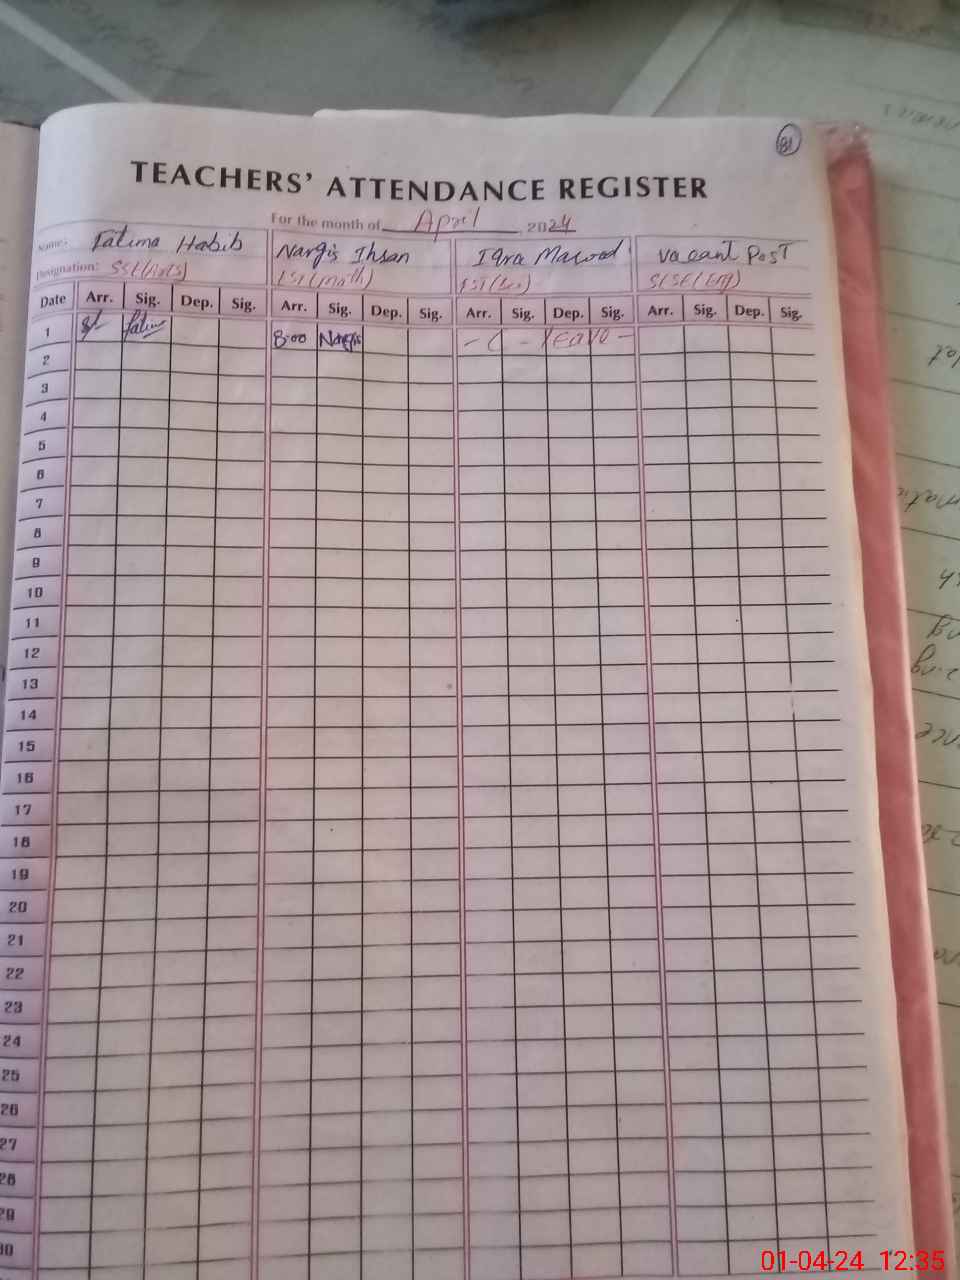 81
TEACHERS' ATTENDANCE REGISTER
For the month of April, 2024
Name: Fatima Habib Nargis Ihsan Iqra Masood vacant Post
Designation: SST(Arts) EST(math) EST(Sci) S/SE(Eng)
Date Arr. Sig. Dep. Sig. Arr. Sig. Dep. Sig. Arr. Sig. Dep. Sig. Arr. Sig. Dep. Sig.
1 8/- Fatima 8:00 Nargis - C - leave -
2
3
4
5
6
7
8
9
10
11
12
13
14
15
16
17
18
19
20
21
22
23
24
25
26
27
28
29
30
01-04-24 12:35